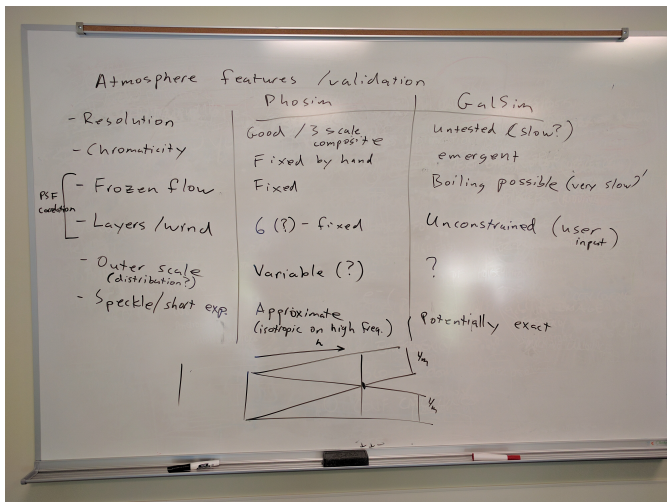 Atmosphere features /validation
Phosim
GalSim
- Resolution
Good / 3 scale
composite
Untested (slow?)
- Chromaticity
Fixed by hand
emergent
- Frozen flow
Fixed
Boiling possible (very slow)
PSF
- Layers /wind
6 (?) - fixed
Unconstrained (user
input)
- Outer scale
(distribution?)
Variable (?)
?
- Speckle/short exp.
Approximate
(isotropic on high freq.)
Potentially exact
h